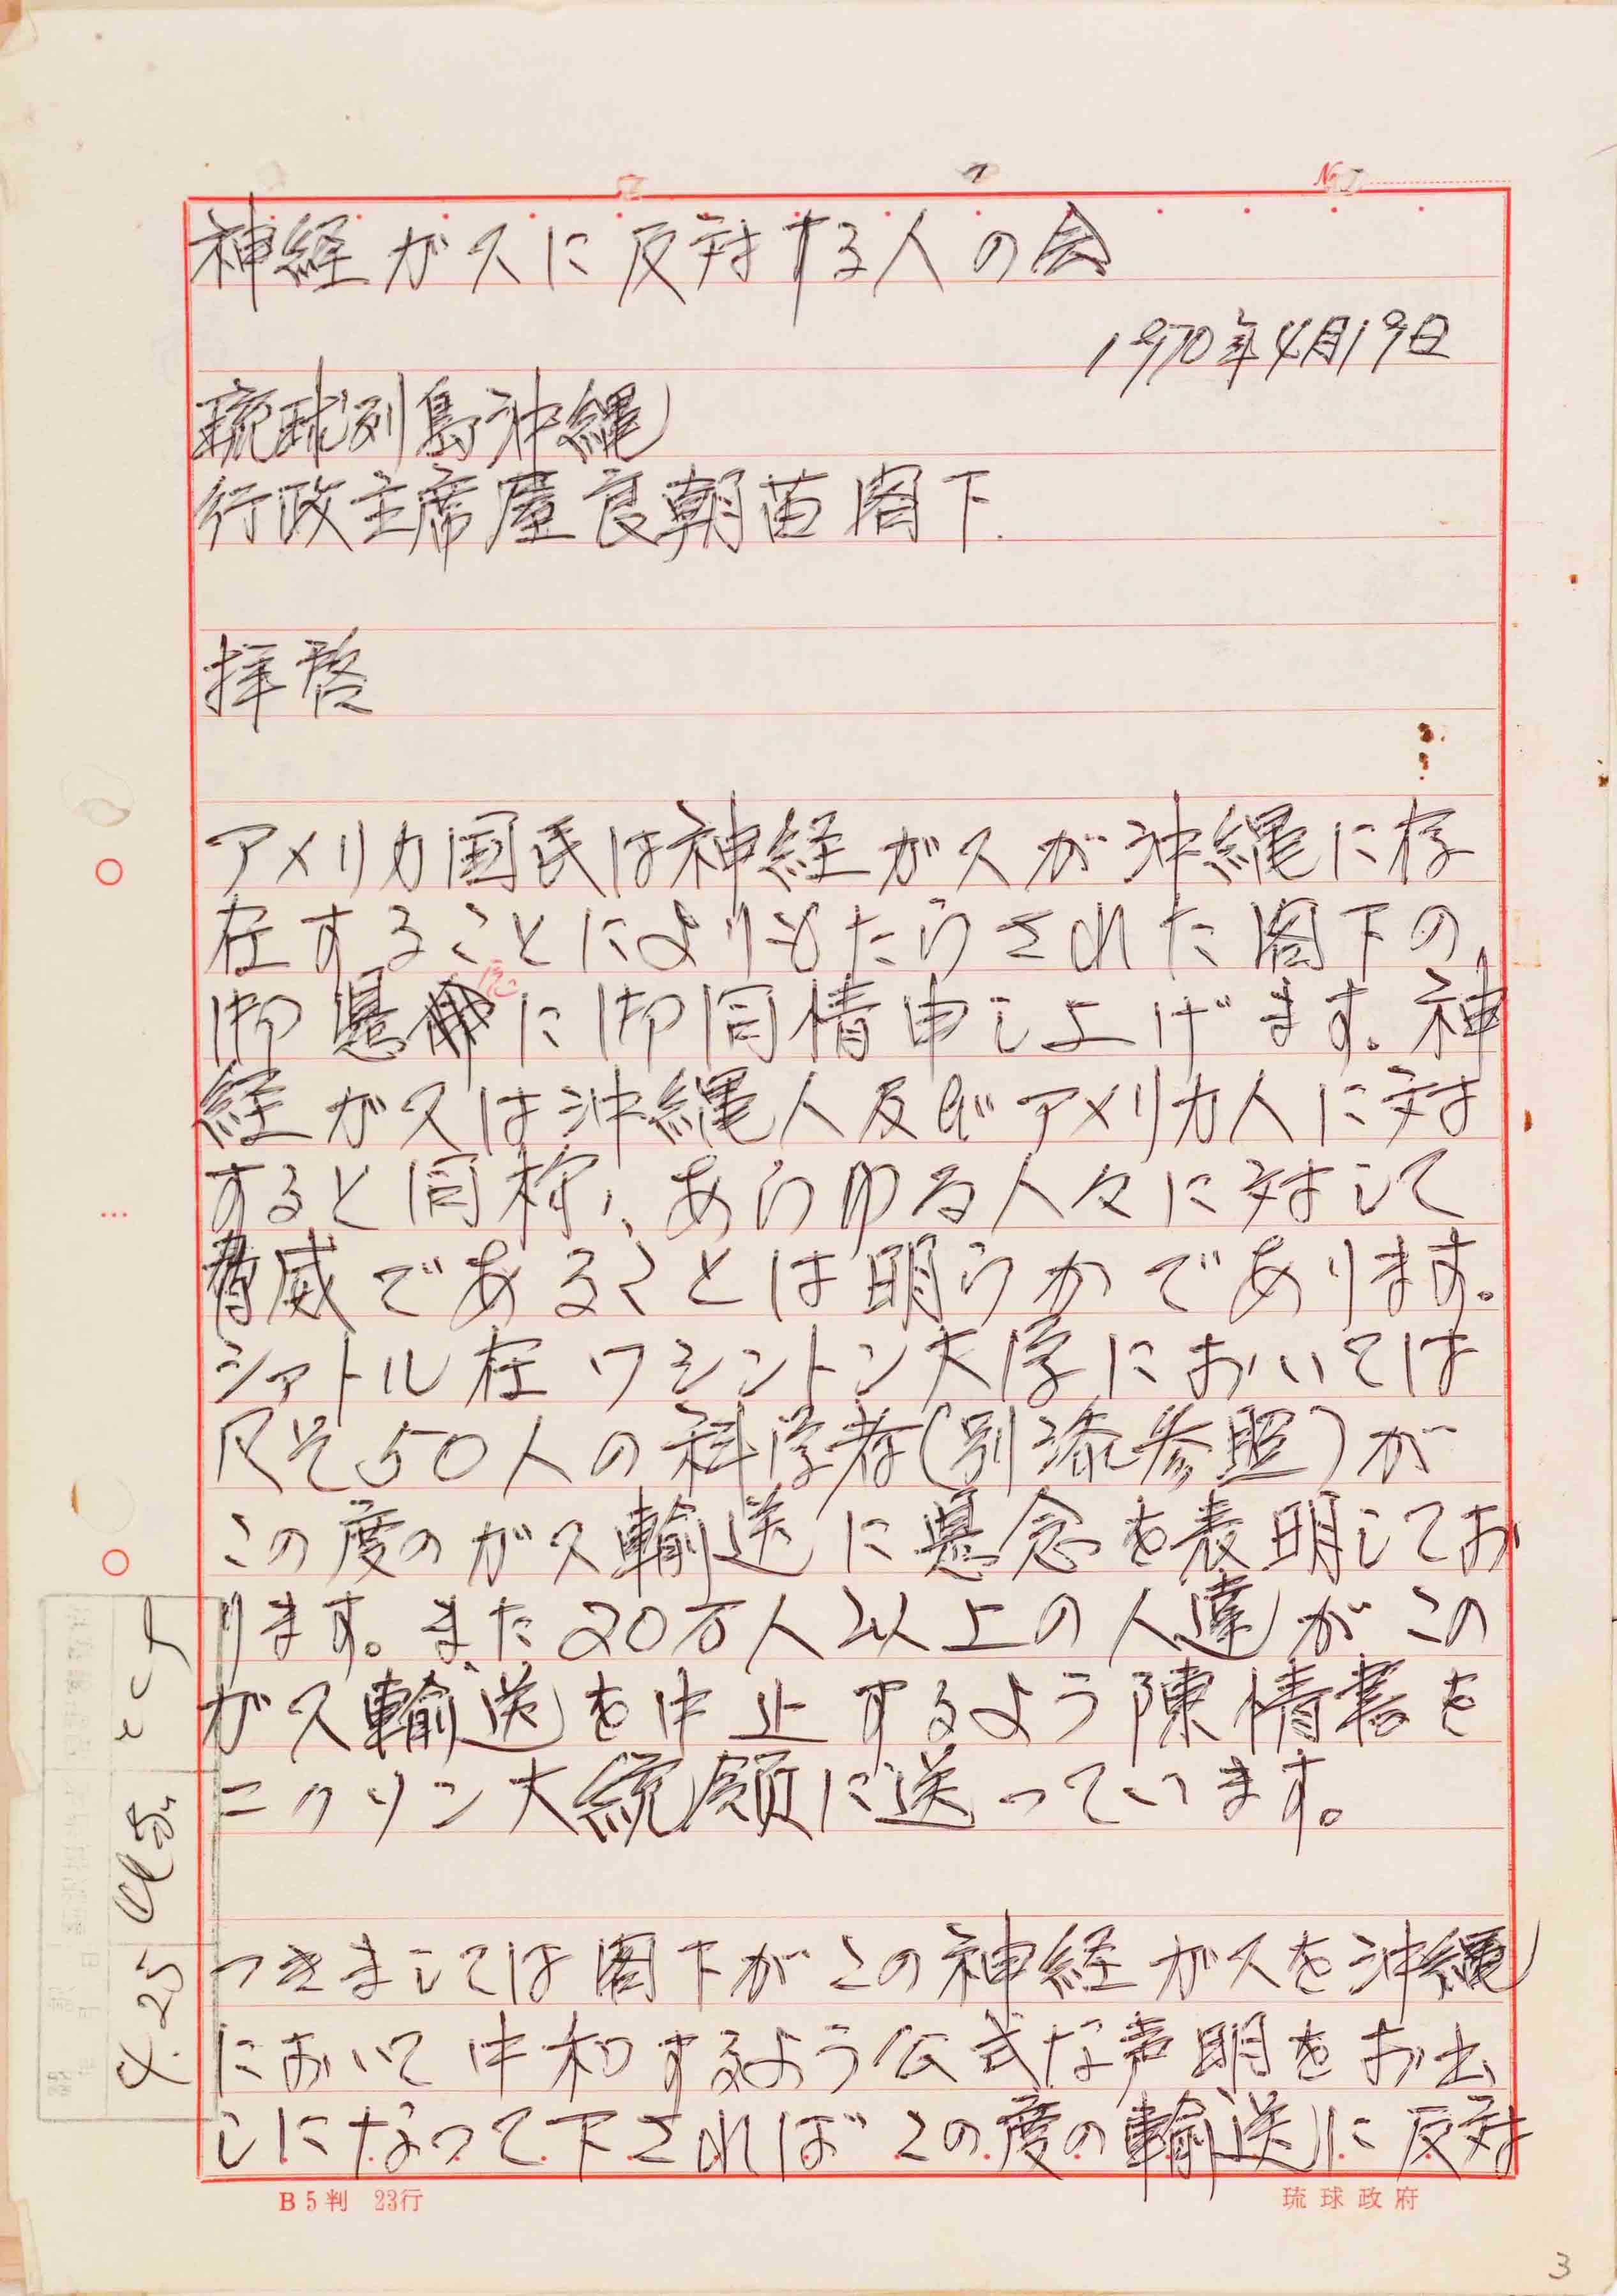 No.
神経ガスに反対する人の会
1970年4月19日
琉球列島沖縄
行政主席屋良朝苗閣下.
拝啓
アメリカ国民は神経ガスが沖縄に存
在することによりもたらされた閣下の
御懸念に御同情申し上げます。神
経ガスは沖縄人及びアメリカ人に対
すると同様、あらゆる人々に対して
脅威であることは明らかであります。
シアトル在ワシントン大学においては
凡そ50人の科学者(別添参照)が
この度のガス輸送に懸念を表明してお
ります。また20万人以上の人達がこの
ガス輸送を中止するよう陳情書を
ニクソン大統領に送っています。
つきましては閣下がこの神経ガスを沖縄
において中和するよう公式な声明をお出
しになって下さればこの度の輸送に反対
B5判 23行
琉球政府
4.25
3